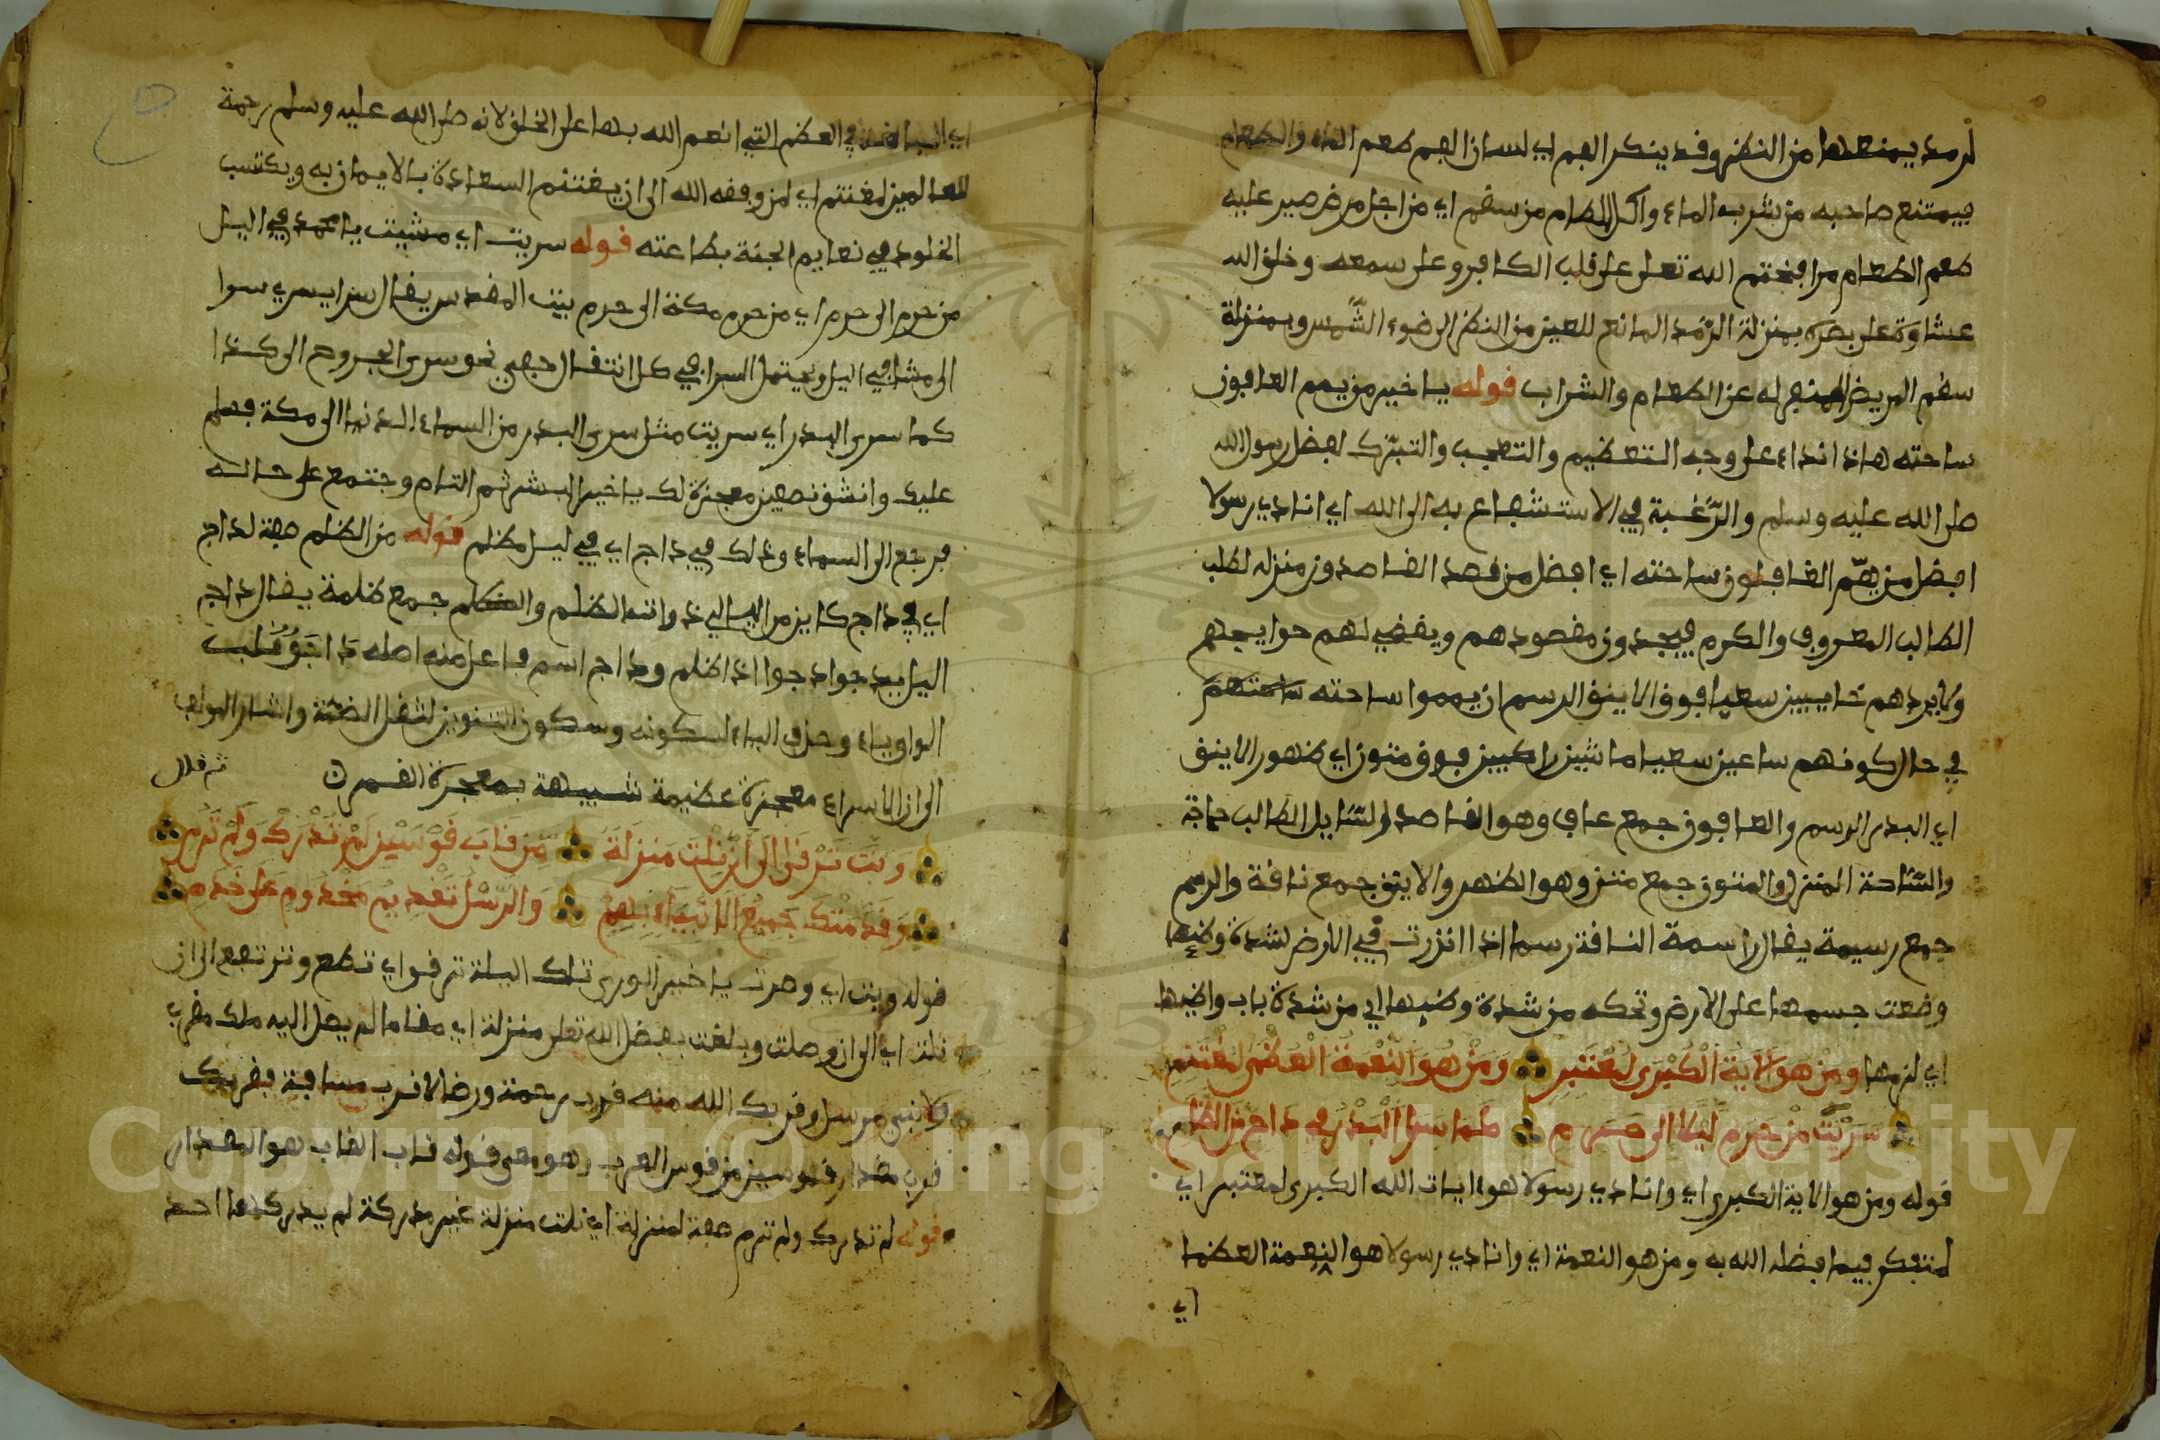 لرمد يمنعها من النظر وقد ينكر الفم اي لسان الفم طعم الماء والطعام
فيمتنع صاحبه من شرب الماء واكل الطعام من سقم اي من اجل مرض صير عليه
طعم الطعام مرا فختم الله تعلى على قلب الكافر وعلى سمعه وخلق الله
عشاوة على بصره بمنزلة الرمد المانع للعين من النظر الى ضوء الشمس وبمنزلة
سقم المريض له عن الطعام والشراب قوله يا خير من يمم العافون
ساحته هاذا نداء على وجه التعظيم والتعجب والتبرك لفضل رسول الله
صلى الله عليه وسلم والرغبة في الاستشفاع به الى الله اي انادي رسولا
افضل من يمم العافون ساحته اي افضل من قصد القاصدون منزله لطلب
الطالب المعروف والكرم فيجدون مقصودهم ويقضي لهم حوايجهم
ولا يردهم خايبين سعيا فوق الاينق الرسم ان يمموا ساحته ساحتهم
في حال كونهم ساعين سعيا ماشين راكبين فوق متون اي ظهور الاينق
اي البدر الرسم والعافون جمع عاف وهو القاصد او السايل الطالب حاجة
والساحة المنزل والمتون جمع متن وهو الظهر والاينق جمع ناقة والرسم
جمع رسيمة يقال راسمة الناقة رسما اذا اثرت في الارض لشدة وطيها
وضعت جسمها على الارض وتحكه من شدة وطيها اي من شدة باب واطيها
اي لزمها ومن هو الاية الكبرى لمعتبر ومن هو النعمة العظمى لمغتنم
سريت من حرم ليلا الى حرم كما سرا البدر في داج من الظلم
قوله ومن هو الاية الكبرى اي وانادي رسولا هو ايات الله الكبرى لمعتبر اي
لمتفكر فيما فضله الله به ومن هو النعمة اي وانادي رسولا هو النعمة العظما
اي
اي العظم التي انعم الله بها على الخلق لانه صلى الله عليه وسلم رحمة
للعالمين لمغتنم اي لمن وفقه الله الى ان يغتنم السعادة بالايمان به ويكتسب
الخلود في نعايم الجنة بطاعته قوله سريت اي مشيت يا محمد في اليل
من حرم الى حرم اي من حرم مكة الى حرم بيت المقدس يقال سرا يسري سوا
الى مشا في اليل ويحتمل السرا في كل انتقال خفي نحو سرى الجروح الى كذا
كما سرى البدر اي سريت مثل سرى البدر من السماء الدنيا الى مكة فسلم
عليك وانشق نصفين معجزة لك يا خير البشر ثم التام وجتمع على حاله
فرجع الى السماء وذلك في داج اي في ليل مظلم قوله من الظلم صفة لداج
اي في داج كاين من اليالي ذوات الظلم والظلم جمع ظلمة يقال داج
اليل يدجوا دجوا اذا اظلم وداج اسم فاعل منه اصله داجو قلب
الواو ياء وحذف الياء لسكونه وسكون التنوين لثقل الضمة واشار المولف
الى ان الاسراء معجزة عظيمة شبيهة بمعجزة القمر ثم قال
وبت ترقى الى ان نلت منزلة من قاب قوسين لم تدرك ولم ترم
وقدمتك جميع الانبياء بها والرسل تقديم مخدوم على خدم
قوله وبت اي وصرت يا خير الورى تلك اليلة ترقوا اي تطلع وترتفع الى ان
نلت اي الى ان وصلت وبلغت بفضل الله تعلى منزلة اي مقاما لم يصل اليه ملك مقرب
ولا نبي مرسل وقربك الله منه قرب رحمة ورضا لا قرب مسافة فقربك
قرب مقدار قوسين من قوس العرب وهو معى قوله قاب القاب هو المقدار
قوله لم تدرك ولم ترم صفة لمنزلة اي نلت منزلة غير مدركة لم يدركها احد